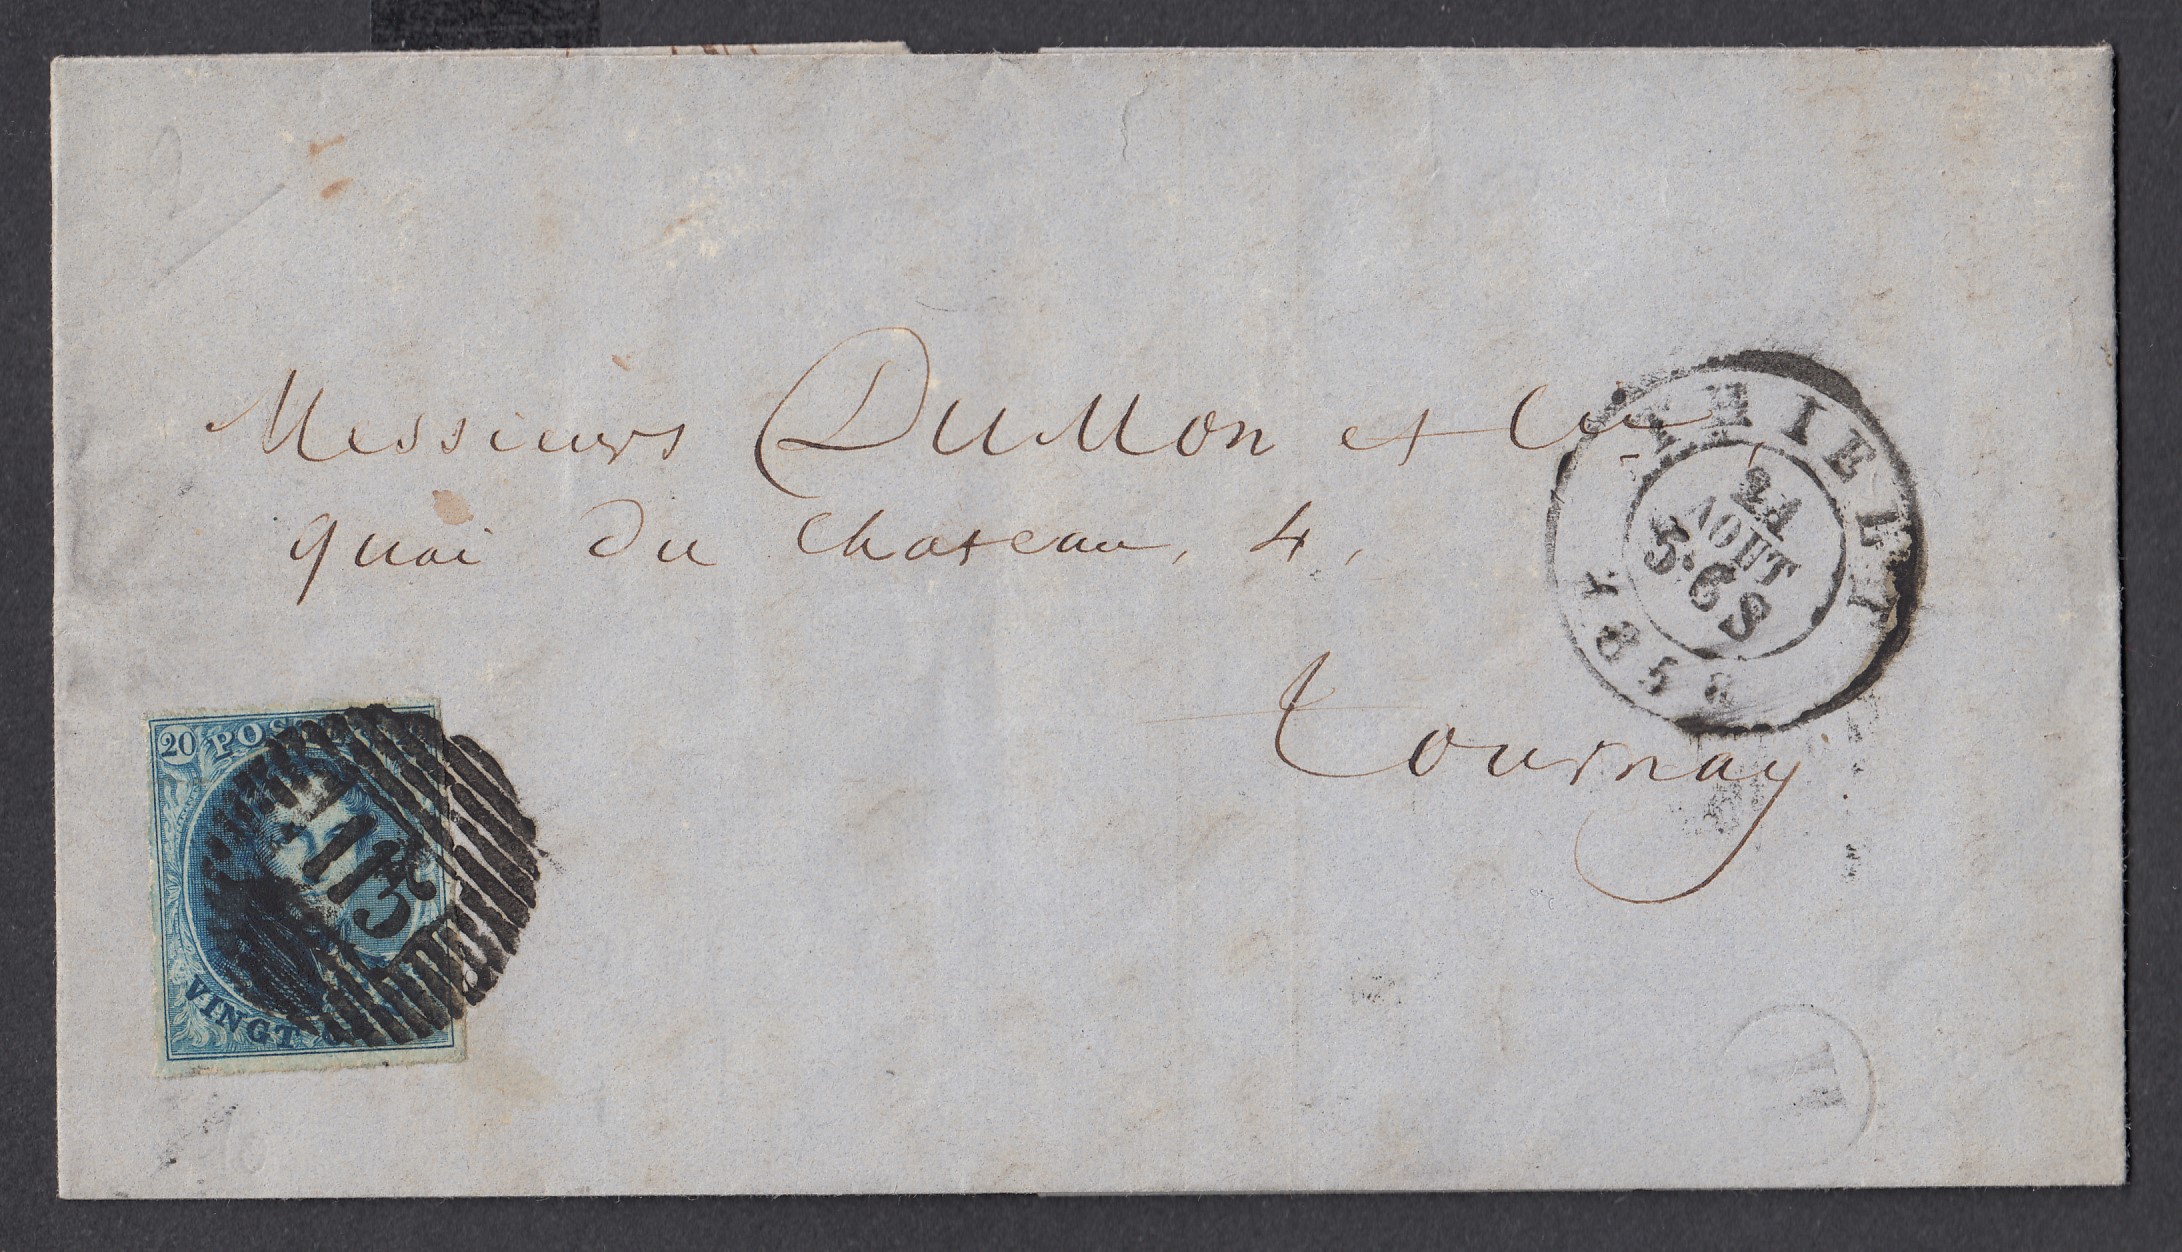 Messieurs DuMon et Cie
quai du Chateau, 4,
Tournay
THIELT
24
AOUT
5·6S
1858
20 POSTES
113
VINGT
H